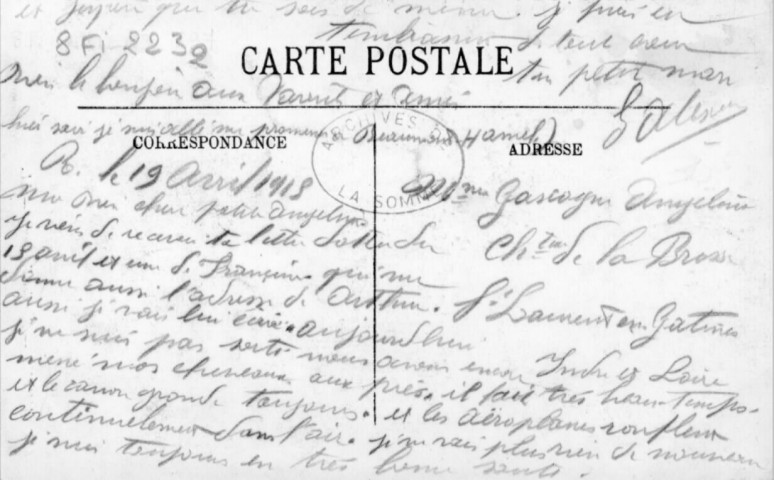 et joyeux que tu sois de même. je puis en
8 Fi 2232
t'embrassant de tout cœur
CARTE POSTALE
ton petit mari
bien le bonjour aux Parents et amis
hier soir je suis allé me promener a Beaumont-Hamel
ARCHIVES DE LA SOMME
CORRESPONDANCE
ADRESSE
R. le 19 avril 1915
Mme Gascogne Angelina
Ch de la Brosse
St Laurent en Gatines
Indre et Loire
ma bien chère petite Angelina
je viens de recevoir ta lettre datée du
15 avril et une de Françine qui me
donne aussi l'adresse de Arthur.
aussi je vais lui écrire aujourd'hui
je ne suis pas sorti nous avons encore
mené nos chevaux aux prés. il fait très beau temps.
et le canon gronde toujours. et les aéroplanes ronflent
continuellement dans l'air. je ne vais plus rien de nouveau
je suis toujours en très bonne santé.